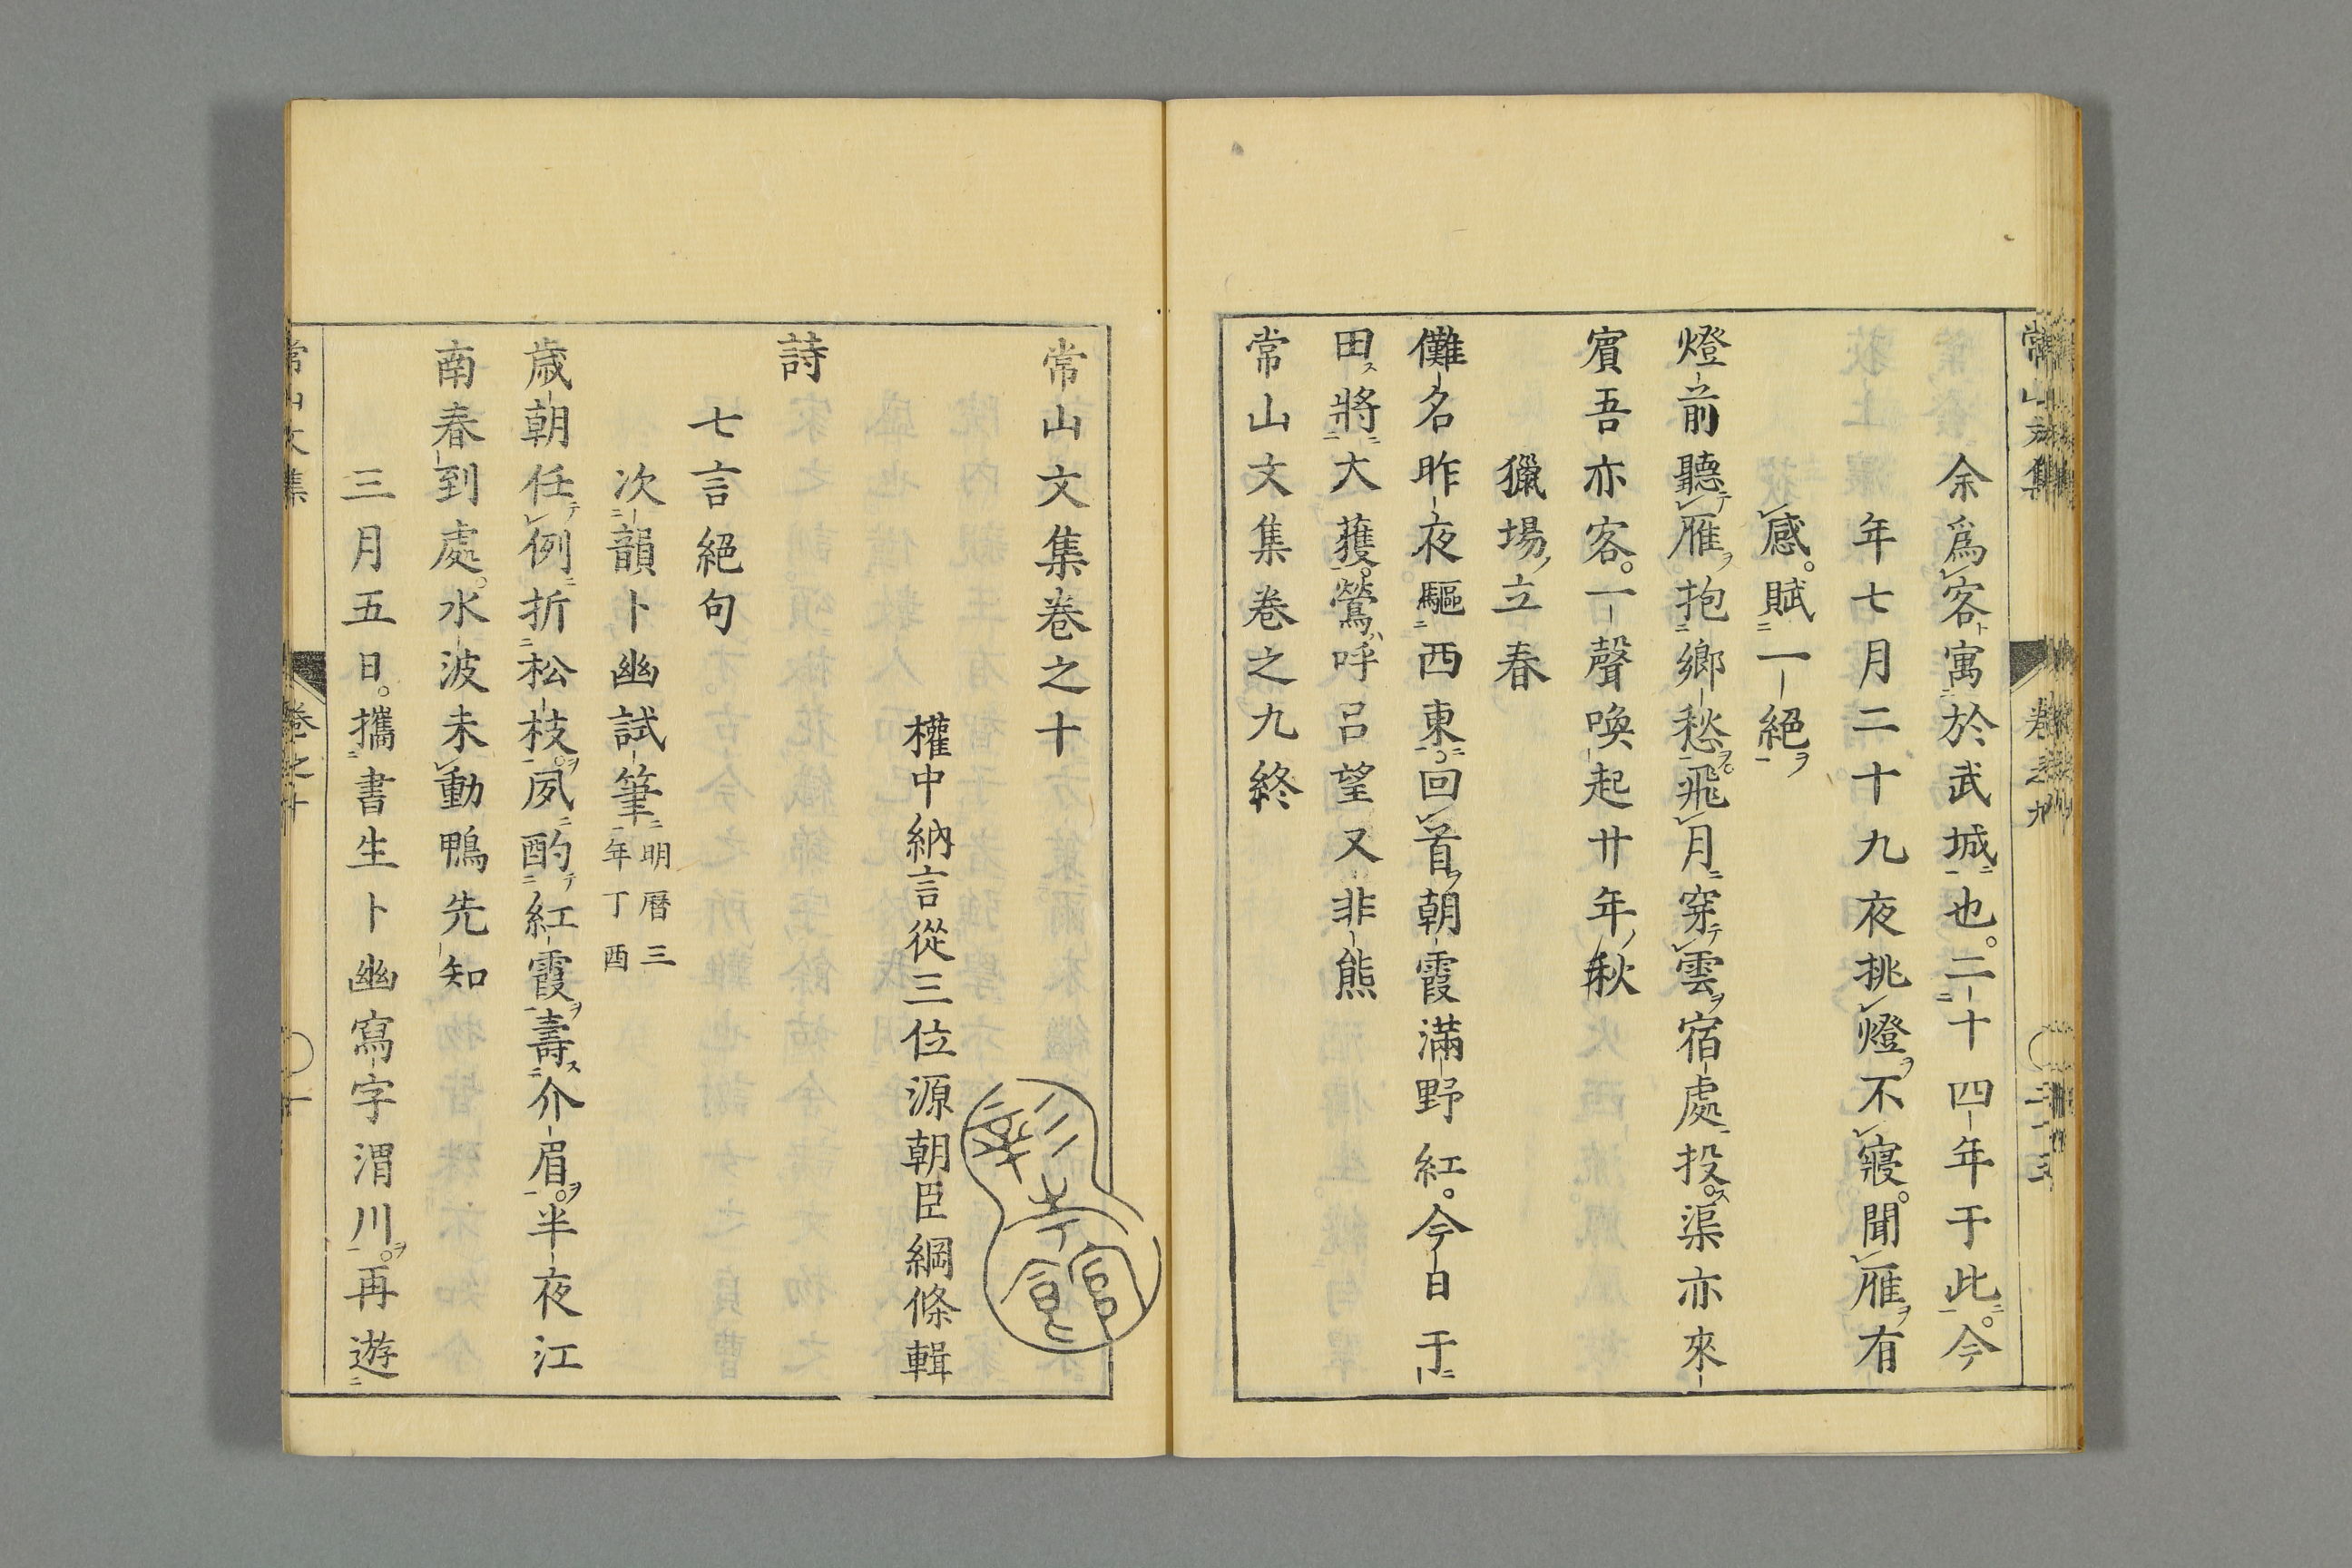 余爲客寓於武城也。二十四年于此。今
年七月二十九夜挑燈不寢。聞雁有
感。賦一絕
燈前聽雁抱鄉愁。飛月穿雲宿處投。渠亦來
賓吾亦客。一聲喚起廿年秋
獵場立春
儺名昨夜驅西東。回首朝霞滿野紅。今日于
田將大獲。鶯呼呂望又非熊
常山文集卷之九終
常山文集卷之十
權中納言從三位源朝臣綱條輯
彰考館
詩
七言絕句
次韻卜幽試筆明曆三年丁酉
歲朝任例折松枝。夙酌紅霞壽介眉。半夜江
南春到處。水波未動鴨先知
三月五日。攜書生卜幽寫字渭川。再遊